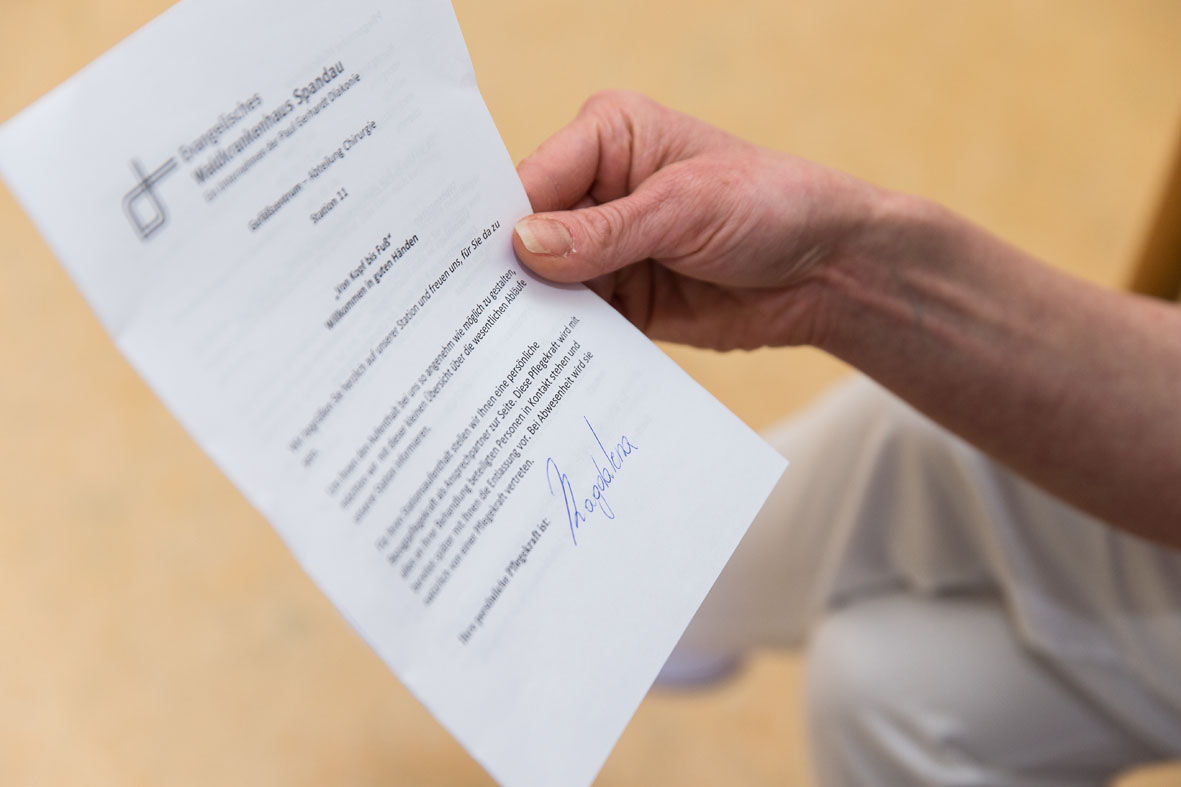 Evangelisches
Waldkrankenhaus Spandau
Ein Unternehmen der Paul Gerhardt Diakonie
Gefäßzentrum – Abteilung Chirurgie
Station 11
„Von Kopf bis Fuß“
Willkommen in guten Händen
Wir begrüßen Sie herzlich auf unserer Station und freuen uns, für Sie da zu
sein.
Um Ihnen den Aufenthalt bei uns so angenehm wie möglich zu gestalten,
möchten wir mit dieser kleinen Übersicht über die wesentlichen Abläufe
unserer Station informieren.
Für Ihren Stationsaufenthalt stellen wir Ihnen eine persönliche
Bezugspflegekraft als Ansprechpartner zur Seite. Diese Pflegekraft wird mit
allen an Ihrer Behandlung beteiligten Personen in Kontakt stehen und
bereitet später mit Ihnen die Entlassung vor. Bei Abwesenheit wird sie
natürlich von einer Pflegekraft vertreten.
Ihre persönliche Pflegekraft ist: Magdalena